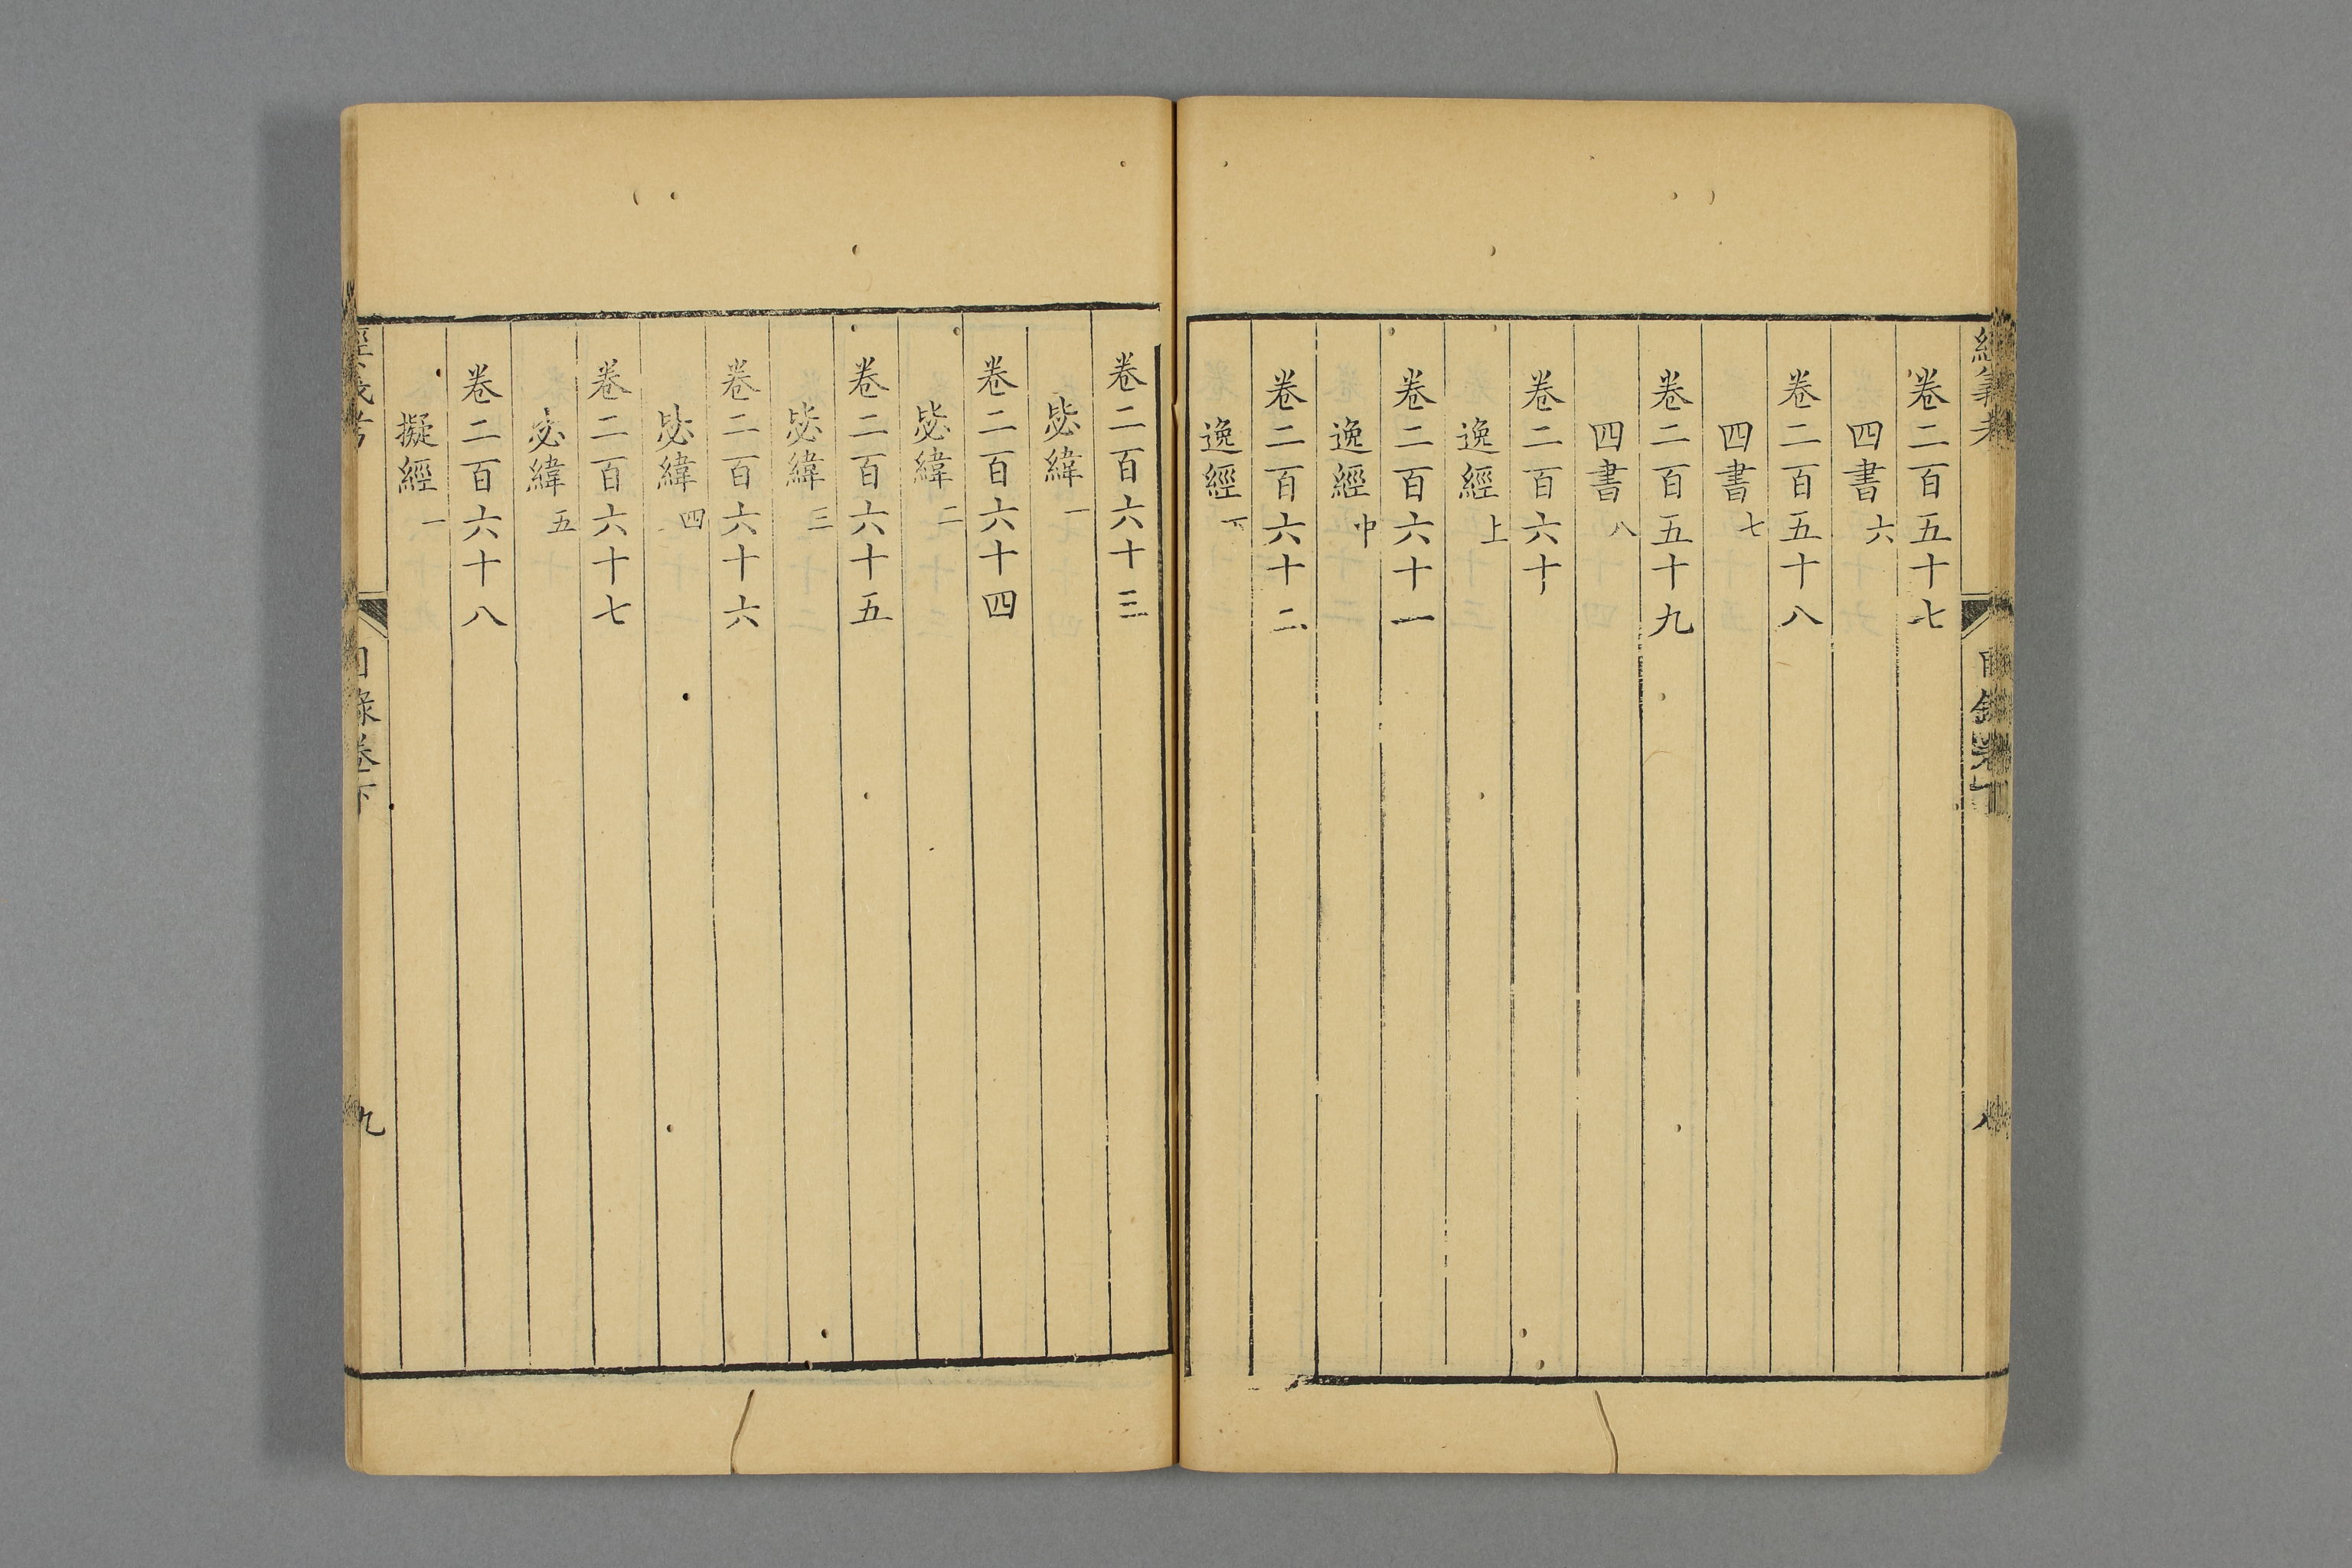 經義考
目錄卷下
八
卷二百五十七
四書六
卷二百五十八
四書七
卷二百五十九
四書八
卷二百六十
逸經上
卷二百六十一
逸經中
卷二百六十二
逸經下
卷二百六十三
毖緯一
卷二百六十四
毖緯二
卷二百六十五
毖緯三
卷二百六十六
毖緯四
卷二百六十七
毖緯五
卷二百六十八
擬經一
經義考
目錄卷下
九